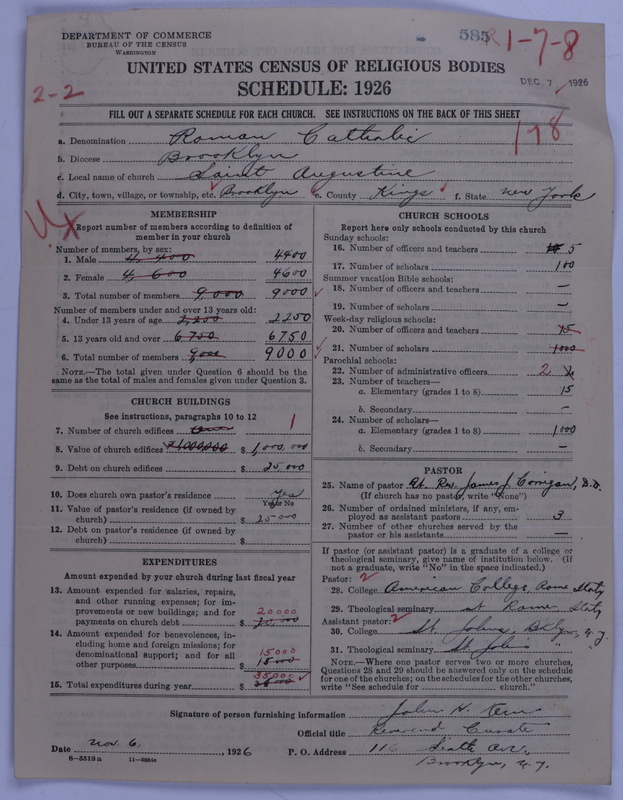 DEPARTMENT OF COMMERCE
BUREAU OF THE CENSUS
WASHINGTON
585
1-7-8
DEC 7 1926
UNITED STATES CENSUS OF RELIGIOUS BODIES
SCHEDULE: 1926
2-2
FILL OUT A SEPARATE SCHEDULE FOR EACH CHURCH. SEE INSTRUCTIONS ON THE BACK OF THIS SHEET
178
a. Denomination Roman Catholic
b. Diocese Brooklyn
c. Local name of church Saint Augustine
d. City, town, village, or township, etc. Brooklyn e. County Kings f. State New York
MEMBERSHIP
Report number of members according to definition of member in your church
Number of members, by sex:
1. Male 4,400 4400
2. Female 4,600 4600
3. Total number of members 9,000 9000
Number of members under and over 13 years old:
4. Under 13 years of age 2,250 2250
5. 13 years old and over 6750 6750
6. Total number of members 9,000 9000
NOTE.—The total given under Question 6 should be the
same as the total of males and females given under Question 3.
CHURCH BUILDINGS
See instructions, paragraphs 10 to 12
7. Number of church edifices 1
8. Value of church edifices $1000000 $ 1,000,000
9. Debt on church edifices $ 25000
10. Does church own pastor's residence Yes
Yes or No
11. Value of pastor's residence (if owned by
church) $ 25000
12. Debt on pastor's residence (if owned by
church) $
EXPENDITURES
Amount expended by your church during last fiscal year
13. Amount expended for salaries, repairs,
and other running expenses; for im-
provements or new buildings; and for
payments on church debt $ 20000
14. Amount expended for benevolences, in-
cluding home and foreign missions; for
denominational support; and for all
other purposes $ 15000
15. Total expenditures during year $ 35000
CHURCH SCHOOLS
Report here only schools conducted by this church
Sunday schools:
16. Number of officers and teachers 15 5
17. Number of scholars 100
Summer vacation Bible schools:
18. Number of officers and teachers —
19. Number of scholars —
Week-day religious schools:
20. Number of officers and teachers 15
21. Number of scholars 1000
Parochial schools:
22. Number of administrative officers 2
23. Number of teachers—
a. Elementary (grades 1 to 8) 15
b. Secondary —
24. Number of scholars—
a. Elementary (grades 1 to 8) 1000
b. Secondary —
PASTOR
25. Name of pastor Rt. Rev. James J. Corrigan, D.D.
(If church has no pastor, write "None")
26. Number of ordained ministers, if any, em-
ployed as assistant pastors 3
27. Number of other churches served by the
pastor or his assistants —
If pastor (or assistant pastor) is a graduate of a college or
theological seminary, give name of institution below. (If
not a graduate, write "No" in the space indicated.)
Pastor: 2
28. College American College, Rome Italy
29. Theological seminary at Rome, Italy
Assistant pastor: 2
30. College St. Johns, Bklyn, N.Y.
31. Theological seminary St. Johns " "
NOTE.—Where one pastor serves two or more churches,
Questions 28 and 29 should be answered only on the schedule
for one of the churches; on the schedules for the other churches,
write "See schedule for ........ church."
Signature of person furnishing information John N.
Official title Reverend Curate
Date Nov. 6, 1926 P. O. Address 116 Sixth Ave.
Brooklyn, N.Y.
8—5518 a